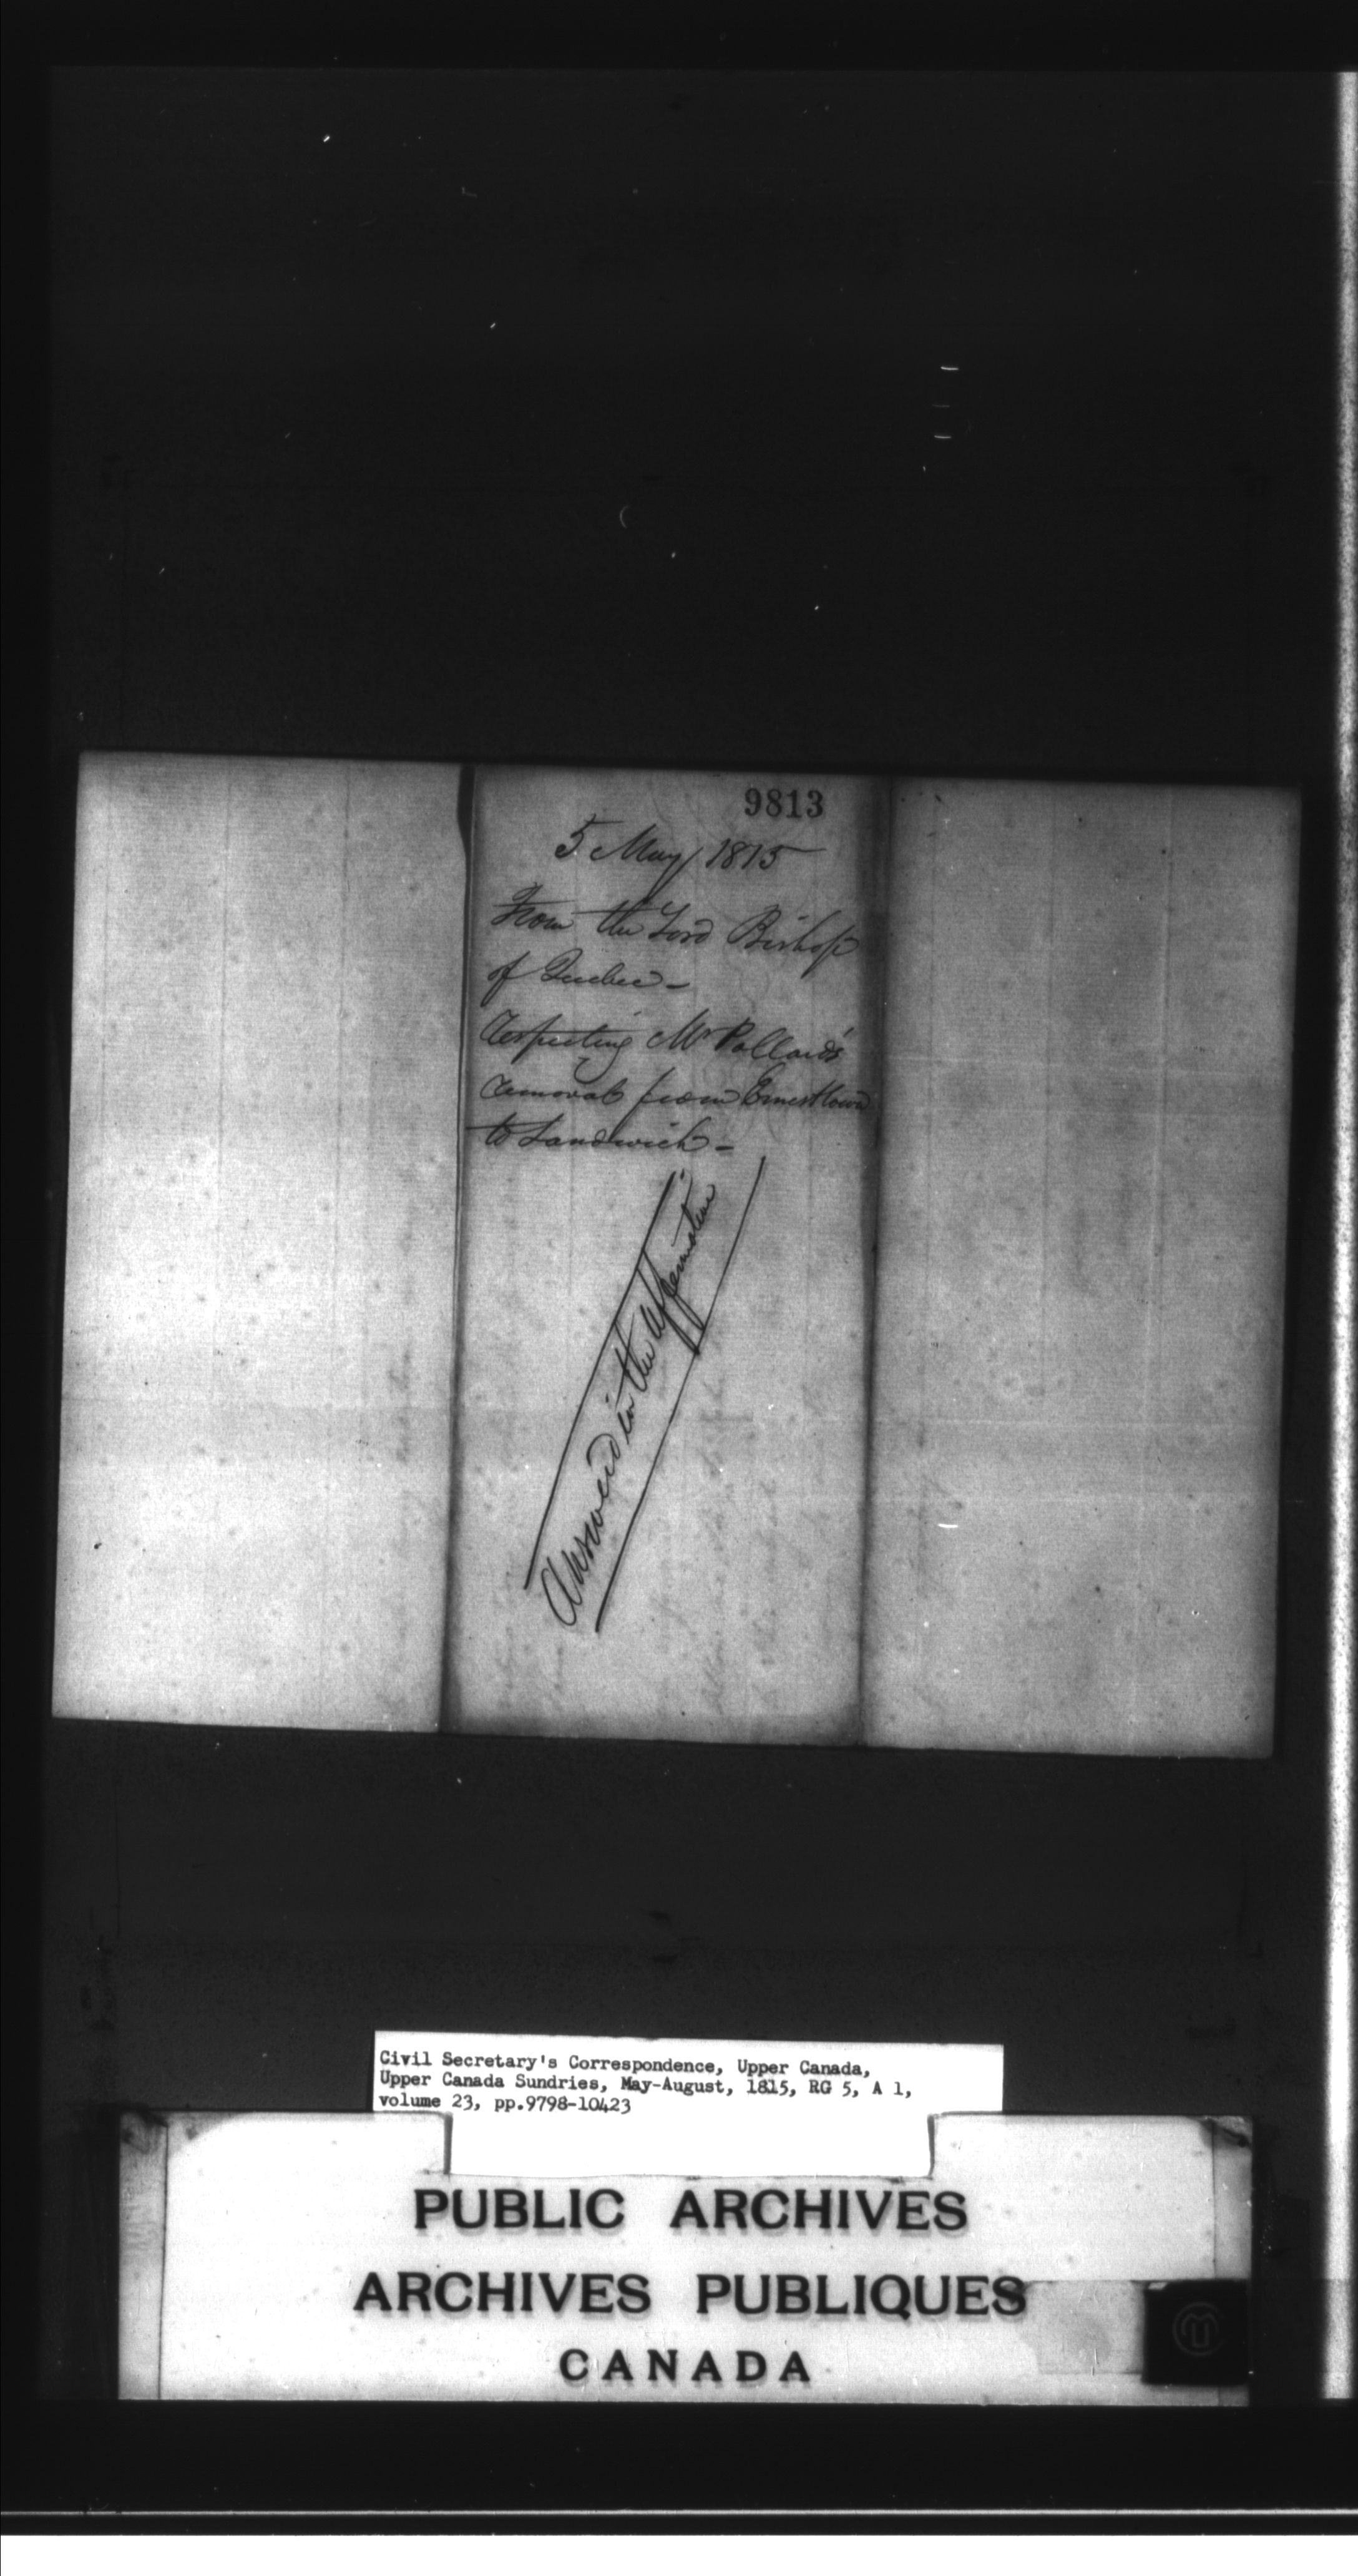 9813
5 May 1815
From the Lord Bishop
of Quebec -
Respecting Mr Pollard's
removal from Ernest town
to Sandwich -
Answered in the affirmative
Civil Secretary's Correspondence, Upper Canada,
Upper Canada Sundries, May-August, 1815, RG 5, A 1,
volume 23, pp.9798-10423
PUBLIC ARCHIVES
ARCHIVES PUBLIQUES
CANADA